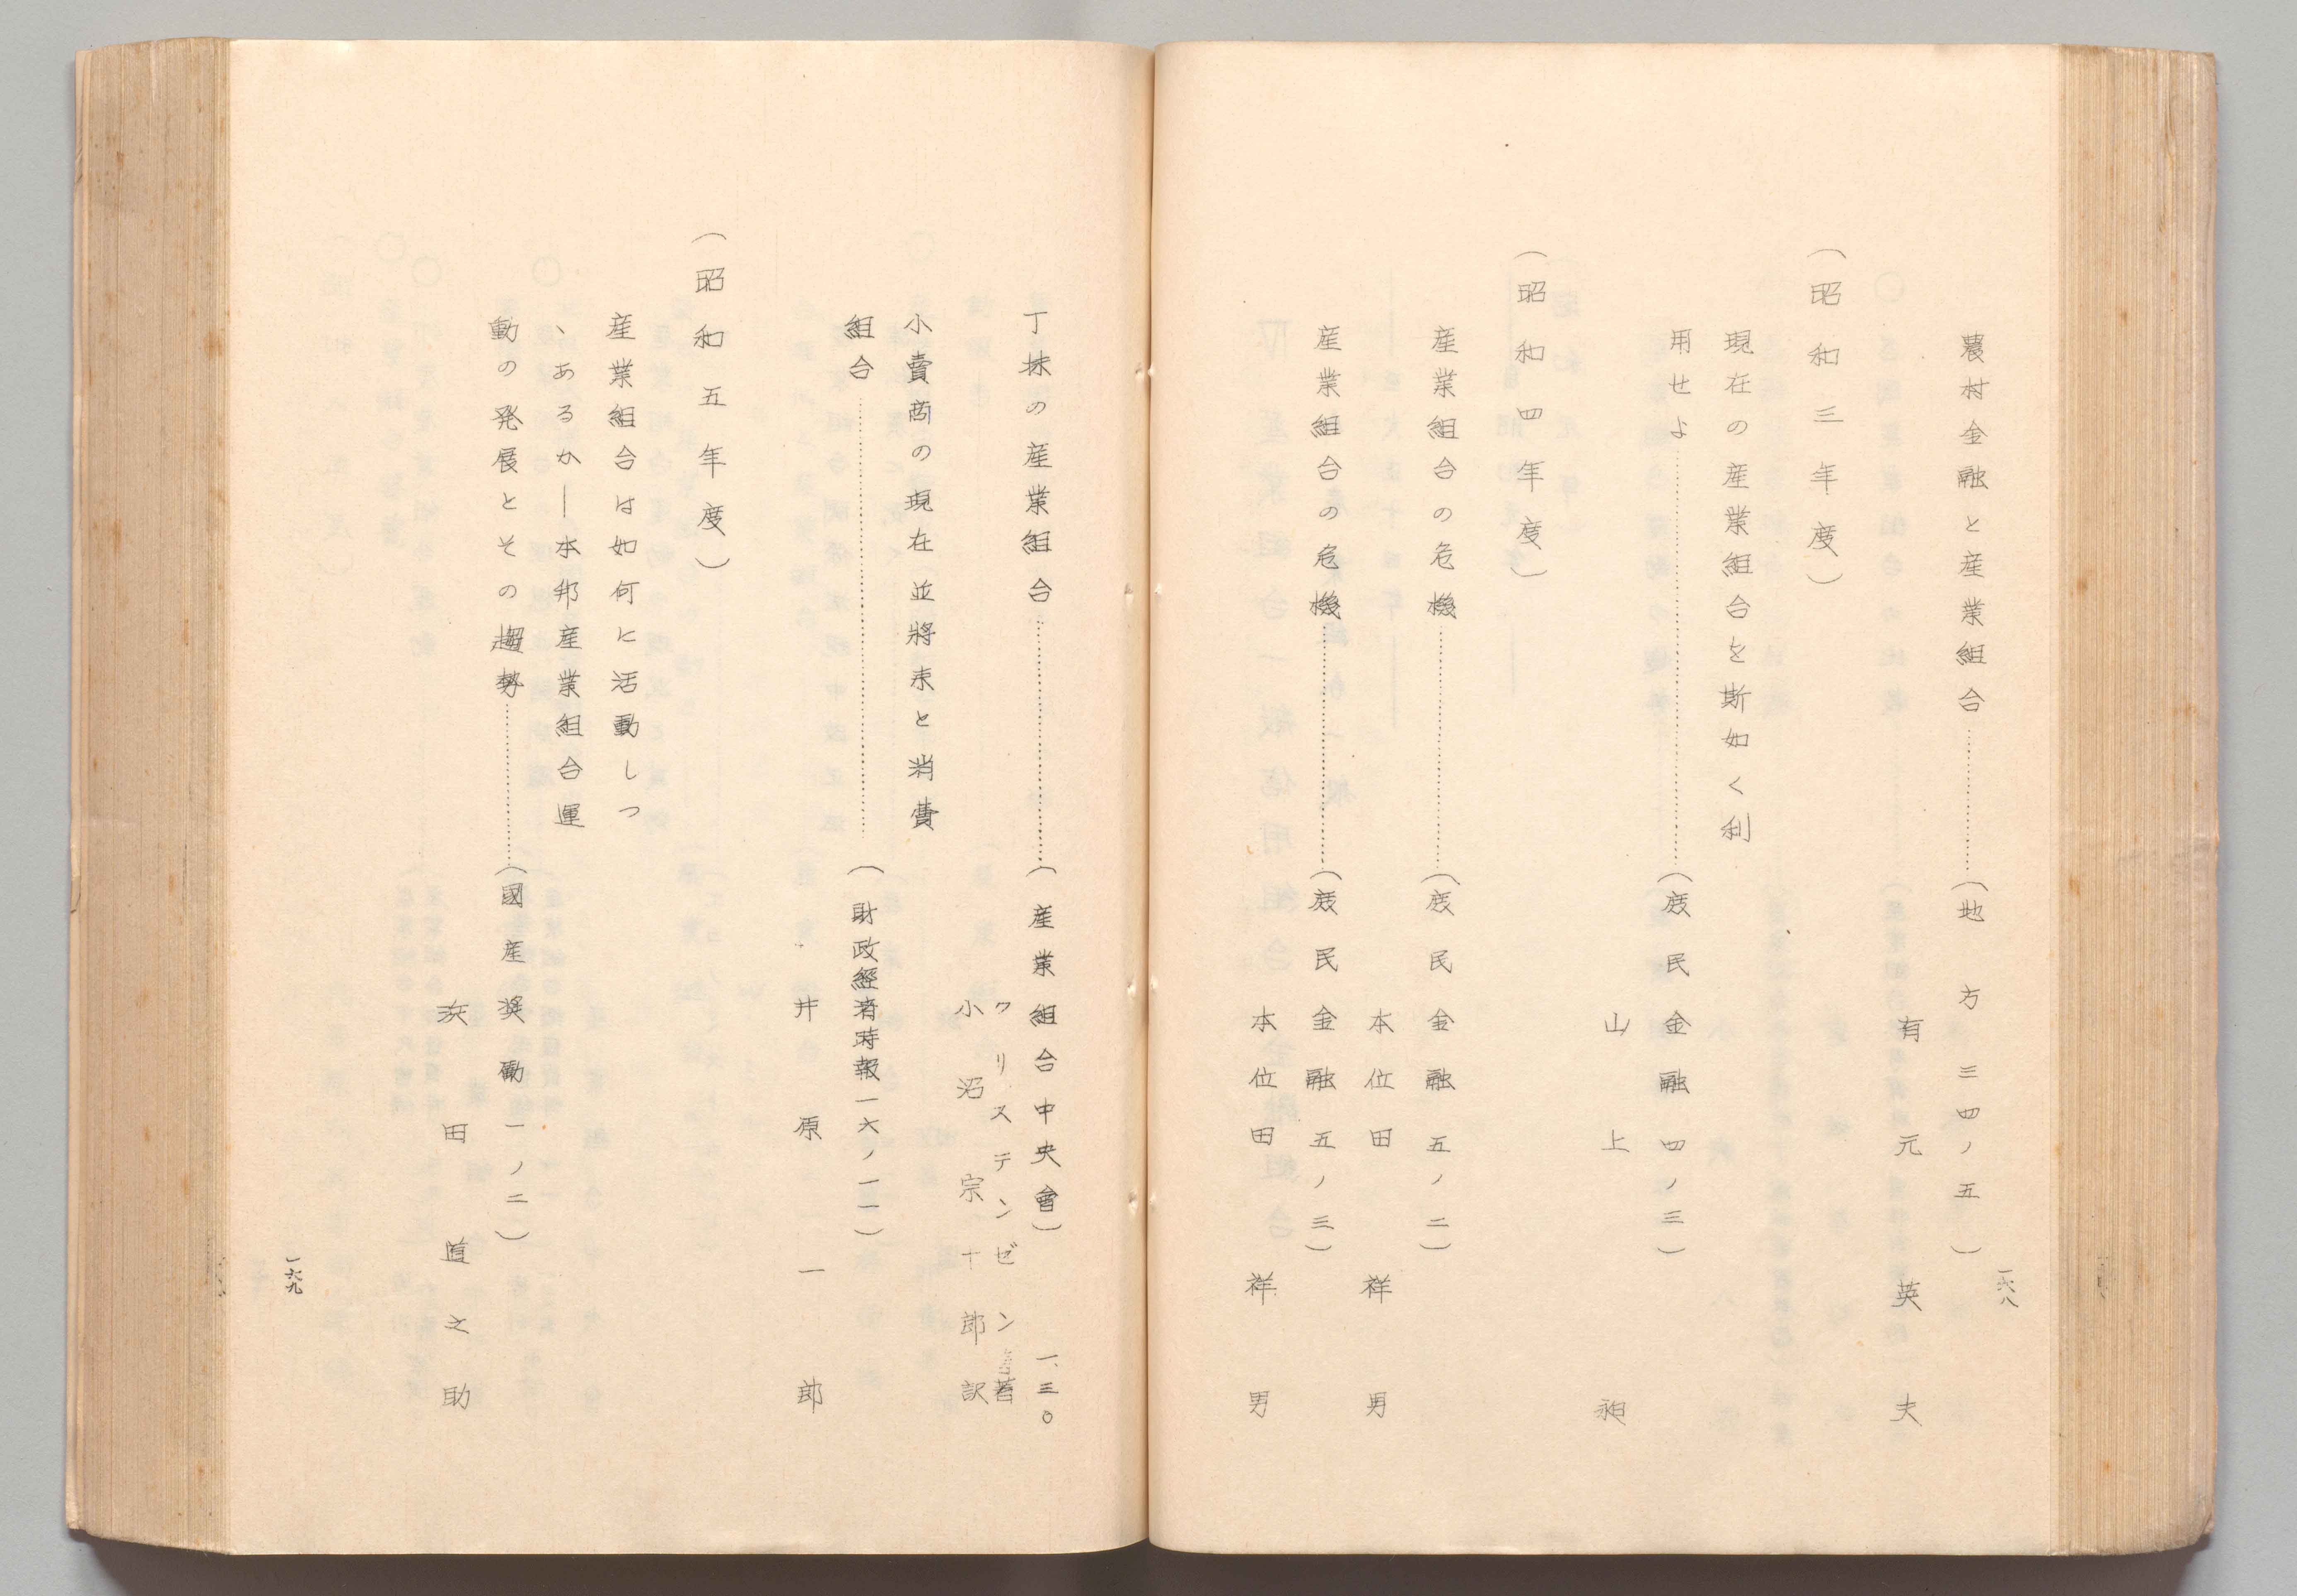 農村金融と産業組合…………(地方三四ノ五)
有元英夫
(昭和三年度)
現在の産業組合を斯如く利
用せよ…………(庶民金融四ノ三)
山上昶
(昭和四年度)
産業組合の危機…………(庶民金融五ノ二)
本位田祥男
産業組合の危機…………(庶民金融五ノ三)
本位田祥男
一六八
丁抹の産業組合…………(産業組合中央會)一、三〇
クリステンゼン著
小沼宗十郎訳
小賣商の現在並將来と消費
組合…………(財政經済時報一六ノ一一)
井原一郎
(昭和五年度)
産業組合は如何に活動しつ
ヽあるか―本邦産業組合運
動の発展とその趨勢…………(國産奨勵一ノ二)
田道之助
一六九